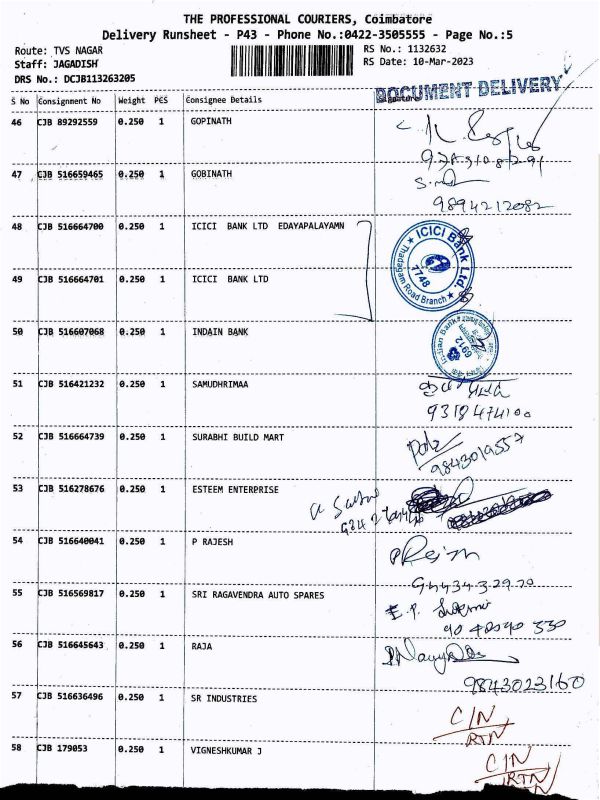 THE PROFESSIONAL COURIERS, Coimbatore
Delivery Runsheet - P43 - Phone No.:0422-3505555 - Page No.:5
Route: TVS NAGAR
RS No.: 1132632
Staff: JAGADISH
RS Date: 10-Mar-2023
DRS No.: DCJB113263205
S No Consignment No Weight PCS Consignee Details
DOCUMENT DELIVERY
46 CJB 89292559 0.250 1 GOPINATH
47 CJB 516659465 0.250 1 GOBINATH
9894212082
48 CJB 516664700 0.250 1 ICICI BANK LTD EDAYAPALAYAMN
ICICI Bank Ltd.
7748
Thadagam Road Branch
49 CJB 516664701 0.250 1 ICICI BANK LTD
50 CJB 516607068 0.250 1 INDAIN BANK
Indian Bank
6912
51 CJB 516421232 0.250 1 SAMUDHRIMAA
9318474100
52 CJB 516664739 0.250 1 SURABHI BUILD MART
9843019557
53 CJB 516278676 0.250 1 ESTEEM ENTERPRISE
54 CJB 516640041 0.250 1 P RAJESH
55 CJB 516569817 0.250 1 SRI RAGAVENDRA AUTO SPARES
56 CJB 516645643 0.250 1 RAJA
9843023160
57 CJB 516636496 0.250 1 SR INDUSTRIES
C/N
RTN
58 CJB 179053 0.250 1 VIGNESHKUMAR J
C/N
RTN